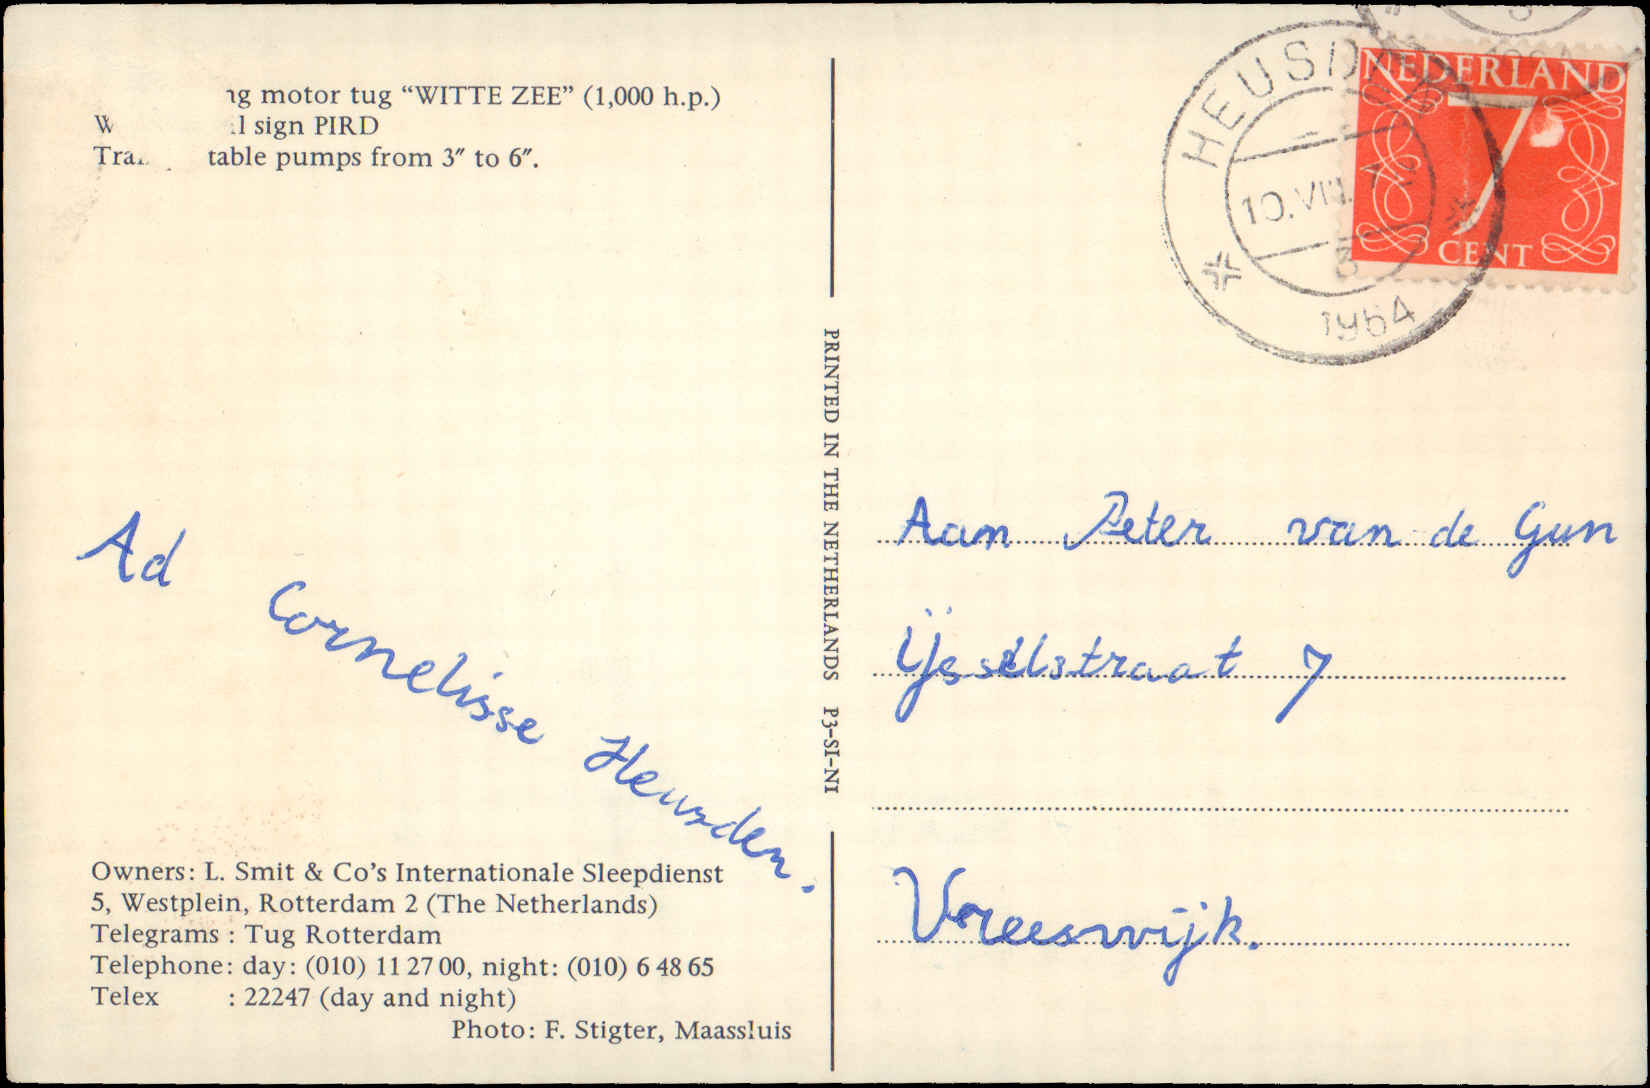 motor tug “WITTE ZEE” (1,000 h.p.)
sign PIRD
table pumps from 3″ to 6″.
Ad Cornelisse Heusden.
Owners: L. Smit & Co’s Internationale Sleepdienst
5, Westplein, Rotterdam 2 (The Netherlands)
Telegrams : Tug Rotterdam
Telephone: day: (010) 11 27 00, night: (010) 6 48 65
Telex : 22247 (day and night)
Photo: F. Stigter, Maassluis
PRINTED IN THE NETHERLANDS P3-SI-NI
HEUSDEN
10.VIII.
3
1964
NEDERLAND
7
CENT
Aan Peter van de Gun
IJsselstraat 7
Vreeswijk.